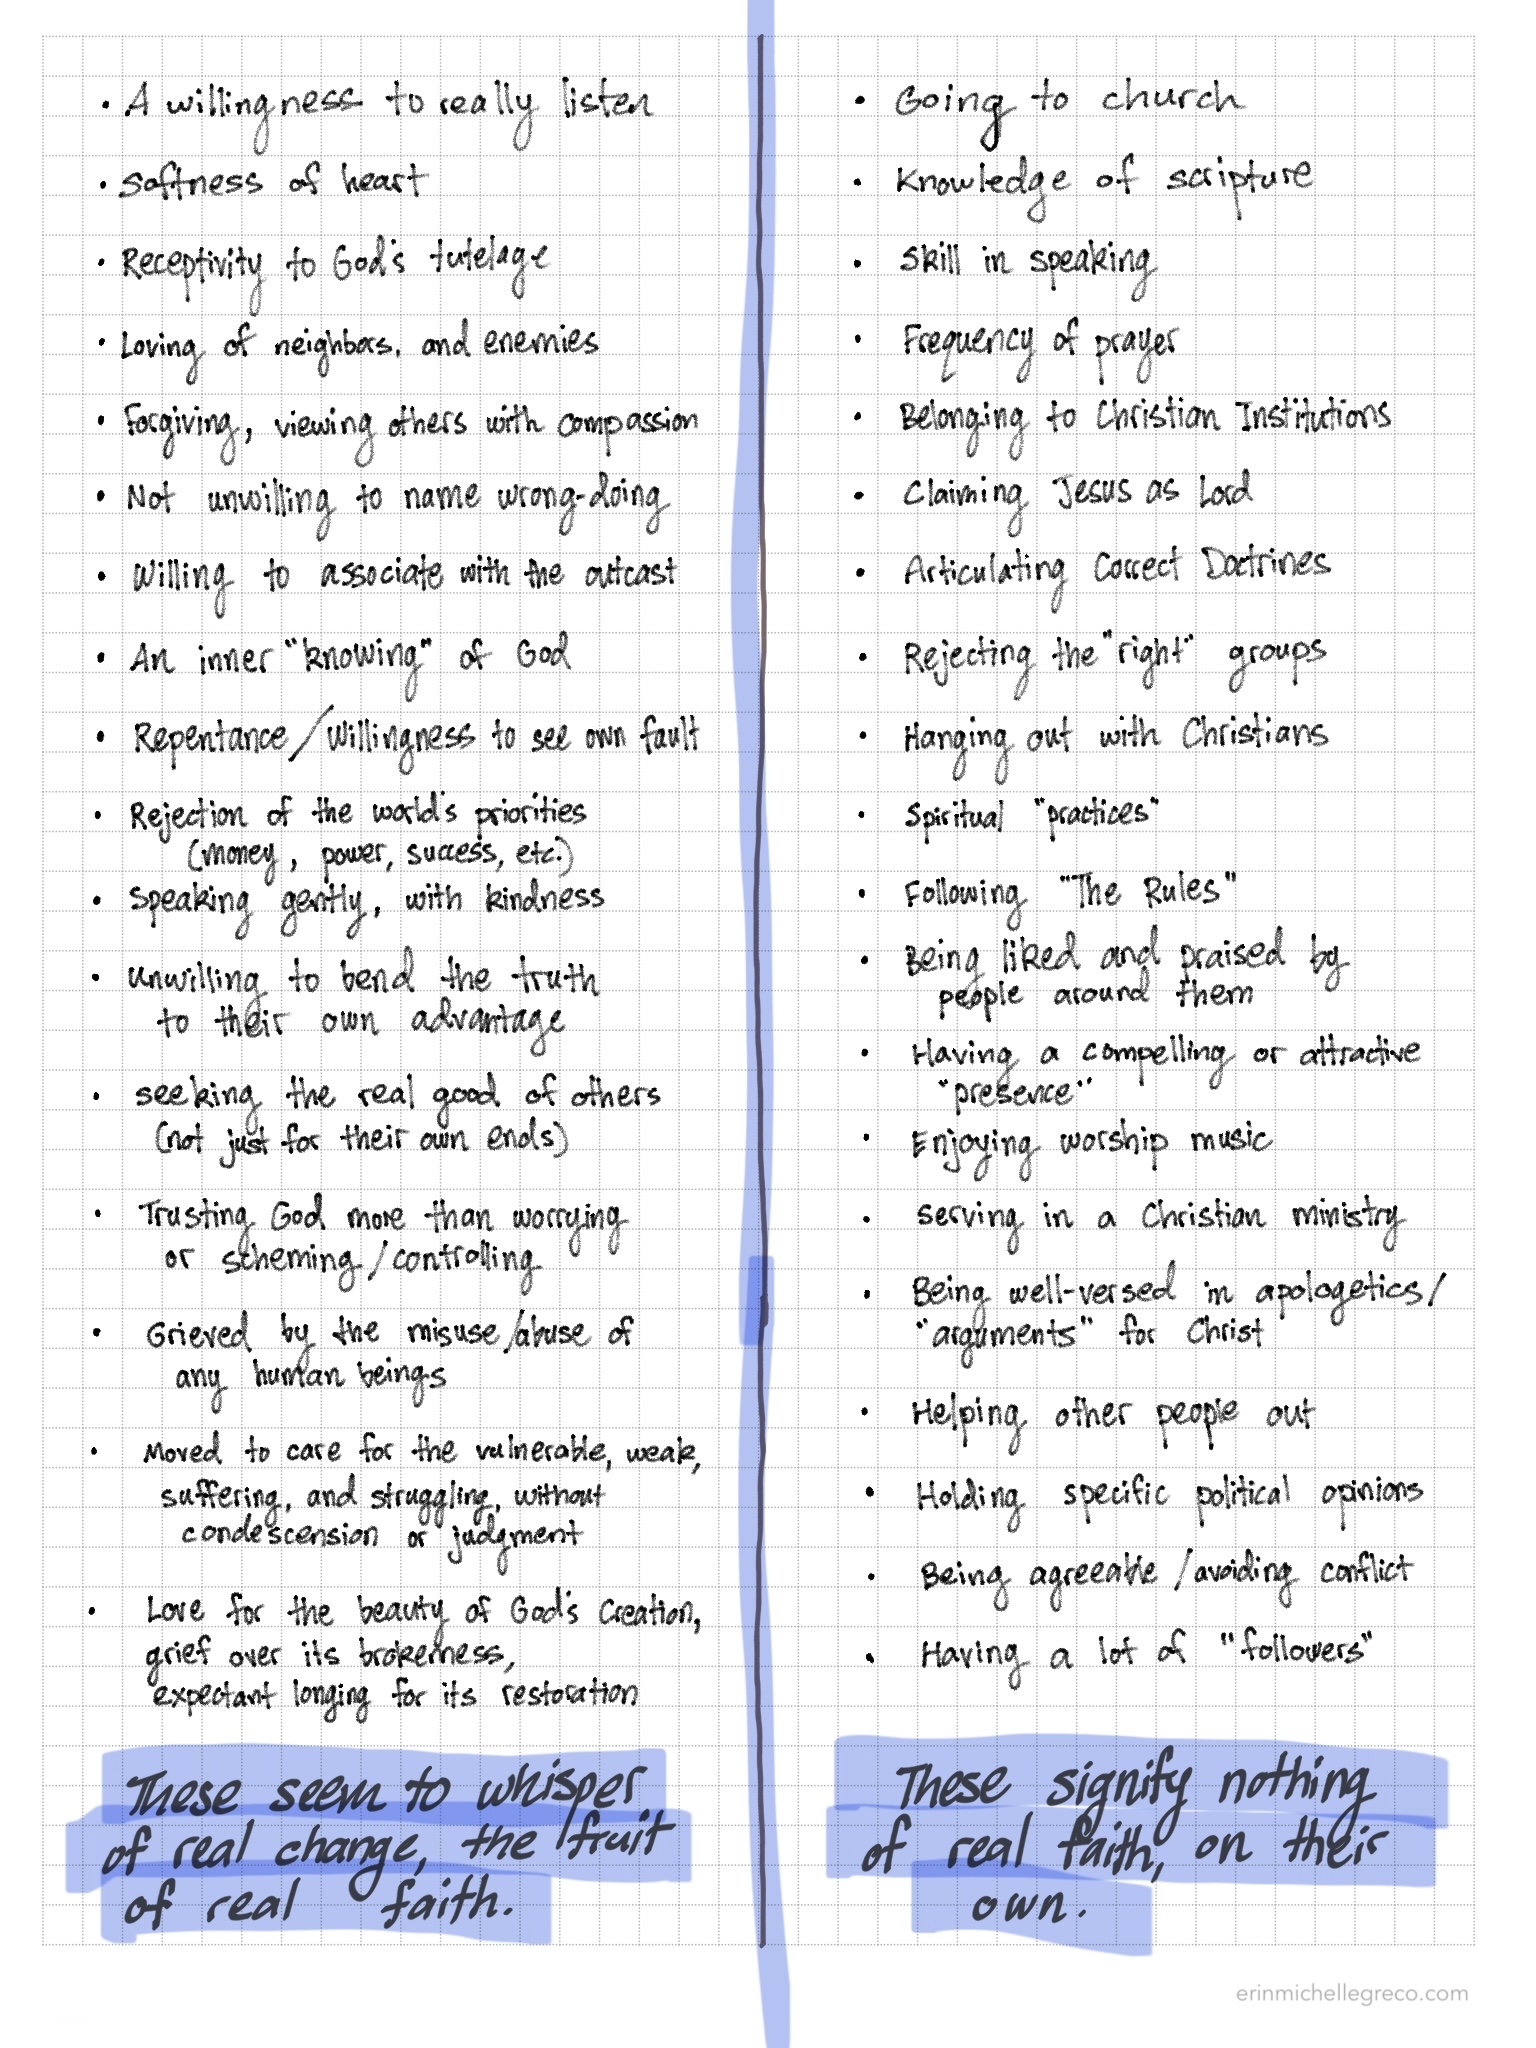 • A willingness to really listen
• Softness of heart
• Receptivity to God's tutelage
• Loving of neighbors, and enemies
• Forgiving, viewing others with compassion
• Not unwilling to name wrong-doing
• Willing to associate with the outcast
• An inner "knowing" of God
• Repentance/Willingness to see own fault
• Rejection of the world's priorities
(money, power, success, etc.)
• Speaking gently, with kindness
• Unwilling to bend the truth
to their own advantage
• Seeking the real good of others
(not just for their own ends)
• Trusting God more than worrying
or scheming/controlling
• Grieved by the misuse/abuse of
any human beings
• Moved to care for the vulnerable, weak,
suffering, and struggling, without
condescension or judgment
• Love for the beauty of God's Creation,
grief over its brokenness,
expectant longing for its restoration
These seem to whisper
of real change, the fruit
of real faith.
• Going to church
• Knowledge of scripture
• Skill in speaking
• Frequency of prayer
• Belonging to Christian Institutions
• Claiming Jesus as Lord
• Articulating Correct Doctrines
• Rejecting the "right" groups
• Hanging out with Christians
• Spiritual "practices"
• Following "The Rules"
• Being liked and praised by
people around them
• Having a compelling or attractive
"presence"
• Enjoying worship music
• Serving in a Christian ministry
• Being well-versed in apologetics/
"arguments" for Christ
• Helping other people out
• Holding specific political opinions
• Being agreeable/avoiding conflict
• Having a lot of "followers"
These signify nothing
of real faith, on their
own.
erinmichellegreco.com